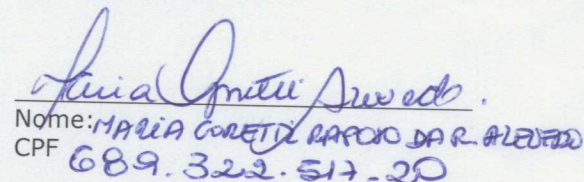 Maria Goretti Azevedo.
Nome: MARIA GORETTI RAPOSO DA R. AZEVEDO
CPF 689.322.517-20